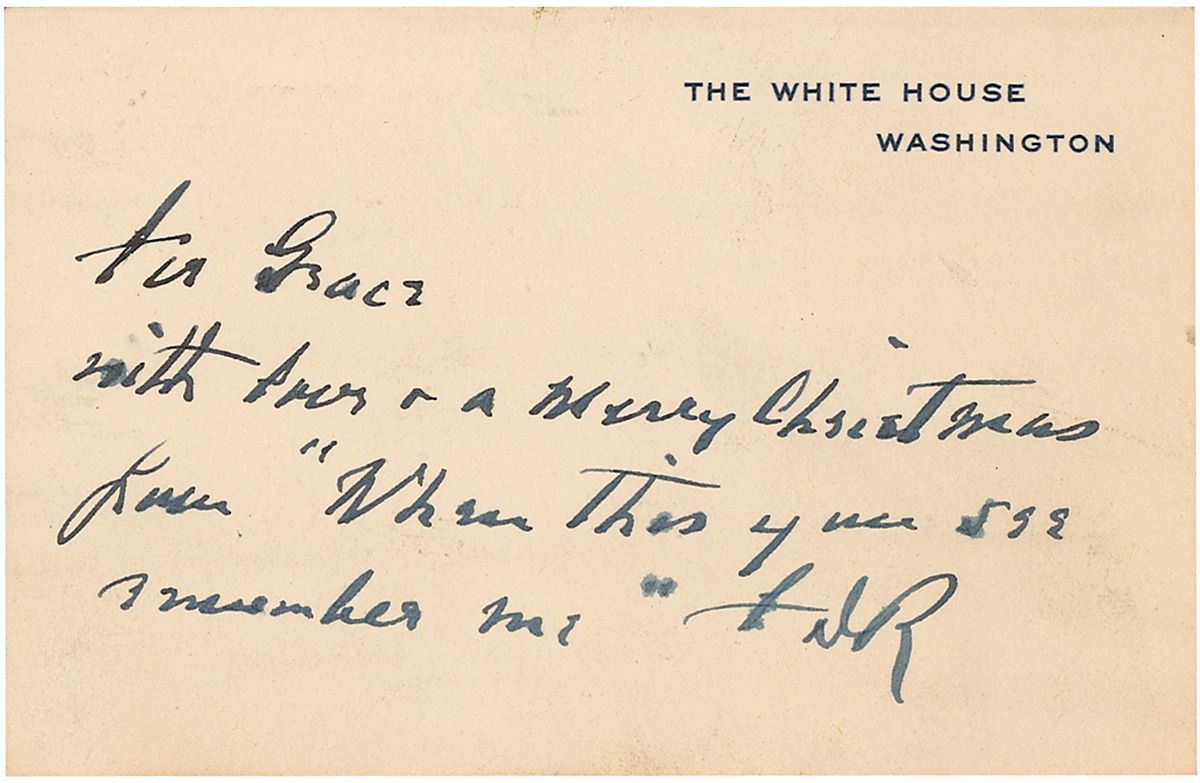 THE WHITE HOUSE
WASHINGTON
For Grace
with love & a Merry Christmas
from "When this you see
remember me" FDR